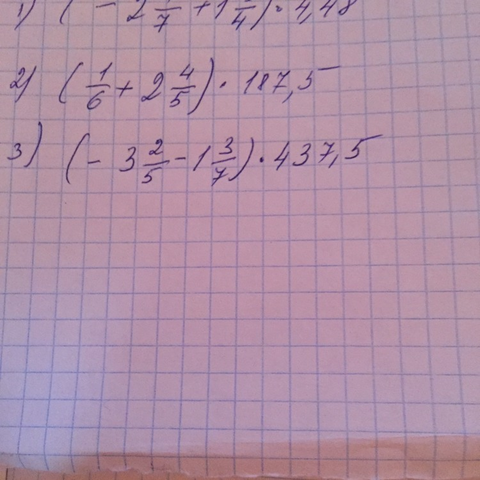 1) (- 2 /7 + 1 /4) · 4,48
2) (1/6 + 2 4/5) · 187,5
3) (- 3 2/5 - 1 3/7) · 437,5